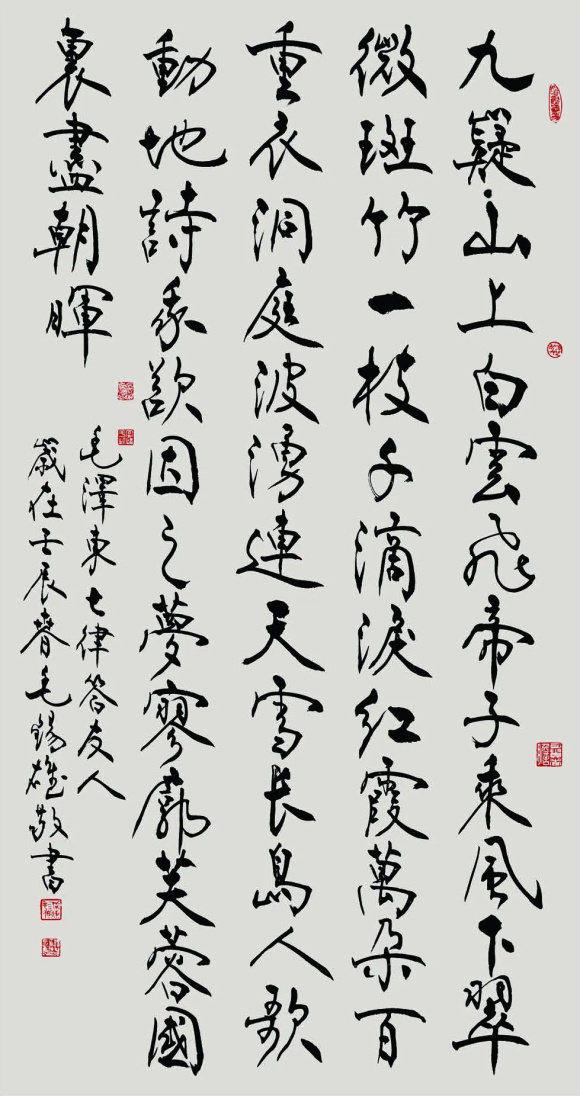 九嶷山上白雲飛帝子乘風下翠
微斑竹一枝千滴淚紅霞萬朵百
重衣洞庭波湧連天雪長島人歌
動地詩我欲因之夢寥廓芙蓉國
裏盡朝暉
毛澤東七律答友人
歲在壬辰春毛錫雄敬書